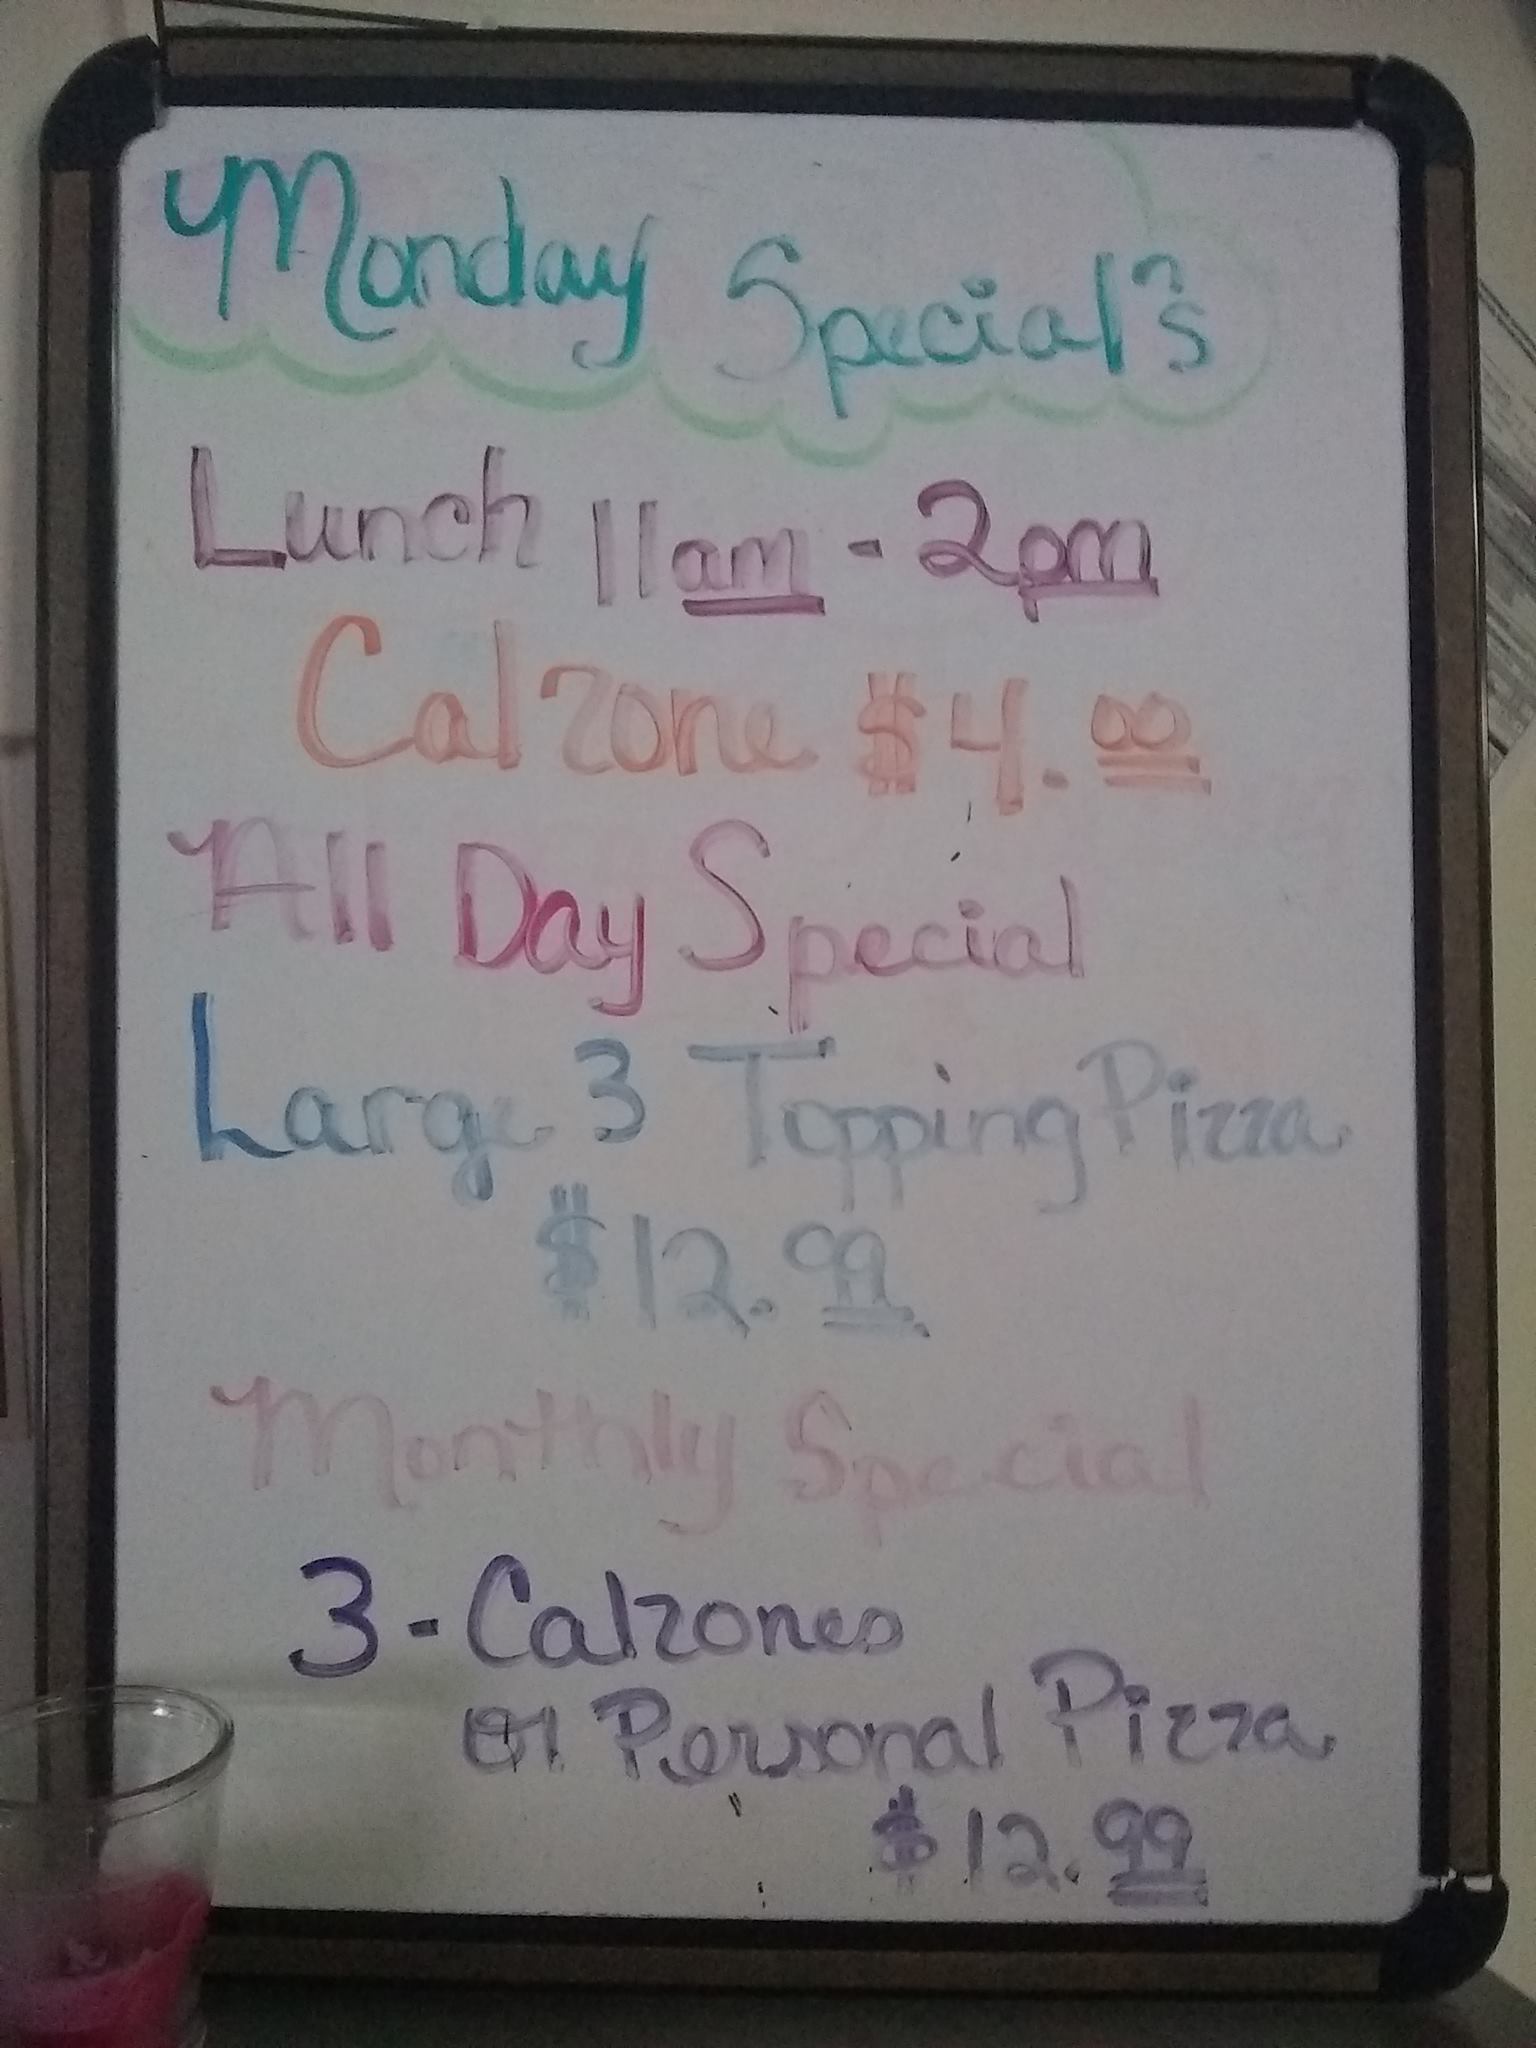 Monday Special's
Lunch 11am - 2pm
Calzone $4.00
All Day Special
Large 3 Topping Pizza
$12.99
Monthly Special
3 - Calzones
or Personal Pizza
$12.99